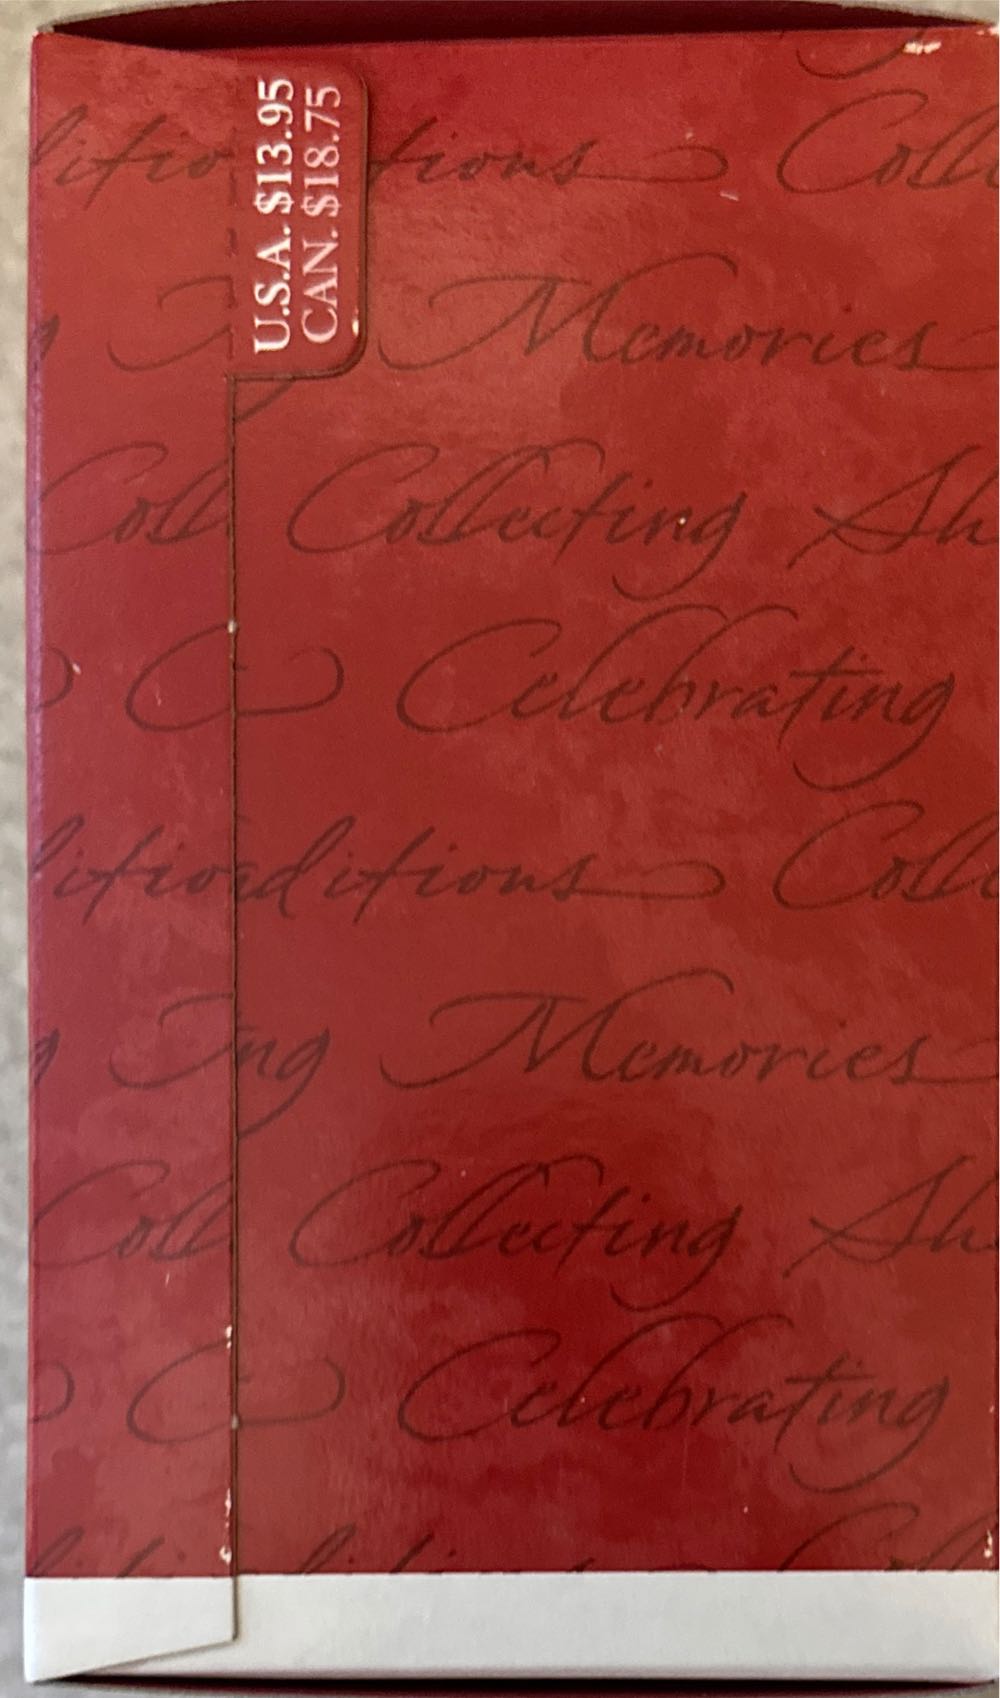 U.S.A. $13.95
CAN. $18.75
ditio tions Coll
g Memories
Coll Collecting Sh
& Celebrating
ditio aditions Coll
g ng Memories
Coll Collecting Sh
& Celebrating